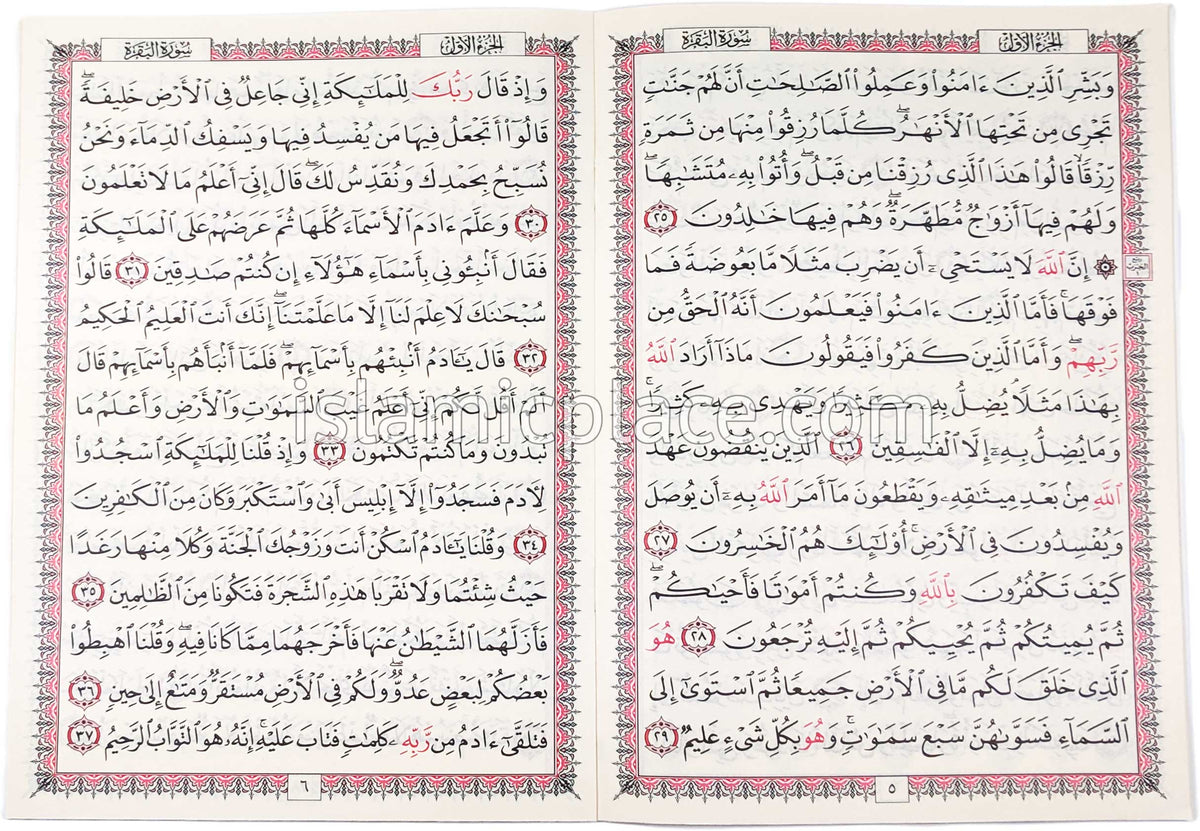 الجزء الأول
سورة البقرة
وَبَشِّرِ ٱلَّذِينَ ءَامَنُوا۟ وَعَمِلُوا۟ ٱلصَّـٰلِحَـٰتِ أَنَّ لَهُمْ جَنَّـٰتٍ
تَجْرِى مِن تَحْتِهَا ٱلْأَنْهَـٰرُ ۖ كُلَّمَا رُزِقُوا۟ مِنْهَا مِن ثَمَرَةٍ
رِّزْقًا ۙ قَالُوا۟ هَـٰذَا ٱلَّذِى رُزِقْنَا مِن قَبْلُ ۖ وَأُتُوا۟ بِهِۦ مُتَشَـٰبِهًا ۖ
وَلَهُمْ فِيهَآ أَزْوَٰجٌ مُّطَهَّرَةٌ ۖ وَهُمْ فِيهَا خَـٰلِدُونَ ٢٥
۞ إِنَّ ٱللَّهَ لَا يَسْتَحْىِۦٓ أَن يَضْرِبَ مَثَلًا مَّا بَعُوضَةً فَمَا
فَوْقَهَا ۚ فَأَمَّا ٱلَّذِينَ ءَامَنُوا۟ فَيَعْلَمُونَ أَنَّهُ ٱلْحَقُّ مِن
رَّبِّهِمْ ۖ وَأَمَّا ٱلَّذِينَ كَفَرُوا۟ فَيَقُولُونَ مَاذَآ أَرَادَ ٱللَّهُ
بِهَـٰذَا مَثَلًا ۘ يُضِلُّ بِهِۦ كَثِيرًا وَيَهْدِى بِهِۦ كَثِيرًا ۚ
وَمَا يُضِلُّ بِهِۦٓ إِلَّا ٱلْفَـٰسِقِينَ ٢٦ ٱلَّذِينَ يَنقُضُونَ عَهْدَ
ٱللَّهِ مِنۢ بَعْدِ مِيثَـٰقِهِۦ وَيَقْطَعُونَ مَآ أَمَرَ ٱللَّهُ بِهِۦٓ أَن يُوصَلَ
وَيُفْسِدُونَ فِى ٱلْأَرْضِ ۚ أُو۟لَـٰٓئِكَ هُمُ ٱلْخَـٰسِرُونَ ٢٧
كَيْفَ تَكْفُرُونَ بِٱللَّهِ وَكُنتُمْ أَمْوَٰتًا فَأَحْيَـٰكُمْ ۖ
ثُمَّ يُمِيتُكُمْ ثُمَّ يُحْيِيكُمْ ثُمَّ إِلَيْهِ تُرْجَعُونَ ٢٨ هُوَ
ٱلَّذِى خَلَقَ لَكُم مَّا فِى ٱلْأَرْضِ جَمِيعًا ثُمَّ ٱسْتَوَىٰٓ إِلَى
ٱلسَّمَآءِ فَسَوَّىٰهُنَّ سَبْعَ سَمَـٰوَٰتٍ ۚ وَهُوَ بِكُلِّ شَىْءٍ عَلِيمٌ ٢٩
٥
الجزء الأول
سورة البقرة
وَإِذْ قَالَ رَبُّكَ لِلْمَلَـٰٓئِكَةِ إِنِّى جَاعِلٌ فِى ٱلْأَرْضِ خَلِيفَةً ۖ
قَالُوٓا۟ أَتَجْعَلُ فِيهَا مَن يُفْسِدُ فِيهَا وَيَسْفِكُ ٱلدِّمَآءَ وَنَحْنُ
نُسَبِّحُ بِحَمْدِكَ وَنُقَدِّسُ لَكَ ۖ قَالَ إِنِّىٓ أَعْلَمُ مَا لَا تَعْلَمُونَ
٣٠ وَعَلَّمَ ءَادَمَ ٱلْأَسْمَآءَ كُلَّهَا ثُمَّ عَرَضَهُمْ عَلَى ٱلْمَلَـٰٓئِكَةِ
فَقَالَ أَنۢبِـُٔونِى بِأَسْمَآءِ هَـٰٓؤُلَآءِ إِن كُنتُمْ صَـٰدِقِينَ ٣١ قَالُوا۟
سُبْحَـٰنَكَ لَا عِلْمَ لَنَآ إِلَّا مَا عَلَّمْتَنَآ ۖ إِنَّكَ أَنتَ ٱلْعَلِيمُ ٱلْحَكِيمُ
٣٢ قَالَ يَـٰٓـَٔادَمُ أَنۢبِئْهُم بِأَسْمَآئِهِمْ ۖ فَلَمَّآ أَنۢبَأَهُم بِأَسْمَآئِهِمْ قَالَ
أَلَمْ أَقُل لَّكُمْ إِنِّىٓ أَعْلَمُ غَيْبَ ٱلسَّمَـٰوَٰتِ وَٱلْأَرْضِ وَأَعْلَمُ مَا
تُبْدُونَ وَمَا كُنتُمْ تَكْتُمُونَ ٣٣ وَإِذْ قُلْنَا لِلْمَلَـٰٓئِكَةِ ٱسْجُدُوا۟
لِـَٔادَمَ فَسَجَدُوٓا۟ إِلَّآ إِبْلِيسَ أَبَىٰ وَٱسْتَكْبَرَ وَكَانَ مِنَ ٱلْكَـٰفِرِينَ
٣٤ وَقُلْنَا يَـٰٓـَٔادَمُ ٱسْكُنْ أَنتَ وَزَوْجُكَ ٱلْجَنَّةَ وَكُلَا مِنْهَا رَغَدًا
حَيْثُ شِئْتُمَا وَلَا تَقْرَبَا هَـٰذِهِ ٱلشَّجَرَةَ فَتَكُونَا مِنَ ٱلظَّـٰلِمِينَ ٣٥
فَأَزَلَّهُمَا ٱلشَّيْطَـٰنُ عَنْهَا فَأَخْرَجَهُمَا مِمَّا كَانَا فِيهِ ۖ وَقُلْنَا ٱهْبِطُوا۟
بَعْضُكُمْ لِبَعْضٍ عَدُوٌّ ۖ وَلَكُمْ فِى ٱلْأَرْضِ مُسْتَقَرٌّ وَمَتَـٰعٌ إِلَىٰ حِينٍ ٣٦
فَتَلَقَّىٰٓ ءَادَمُ مِن رَّبِّهِۦ كَلِمَـٰتٍ فَتَابَ عَلَيْهِ ۚ إِنَّهُۥ هُوَ ٱلتَّوَّابُ ٱلرَّحِيمُ ٣٧
٦
islamicplace.com